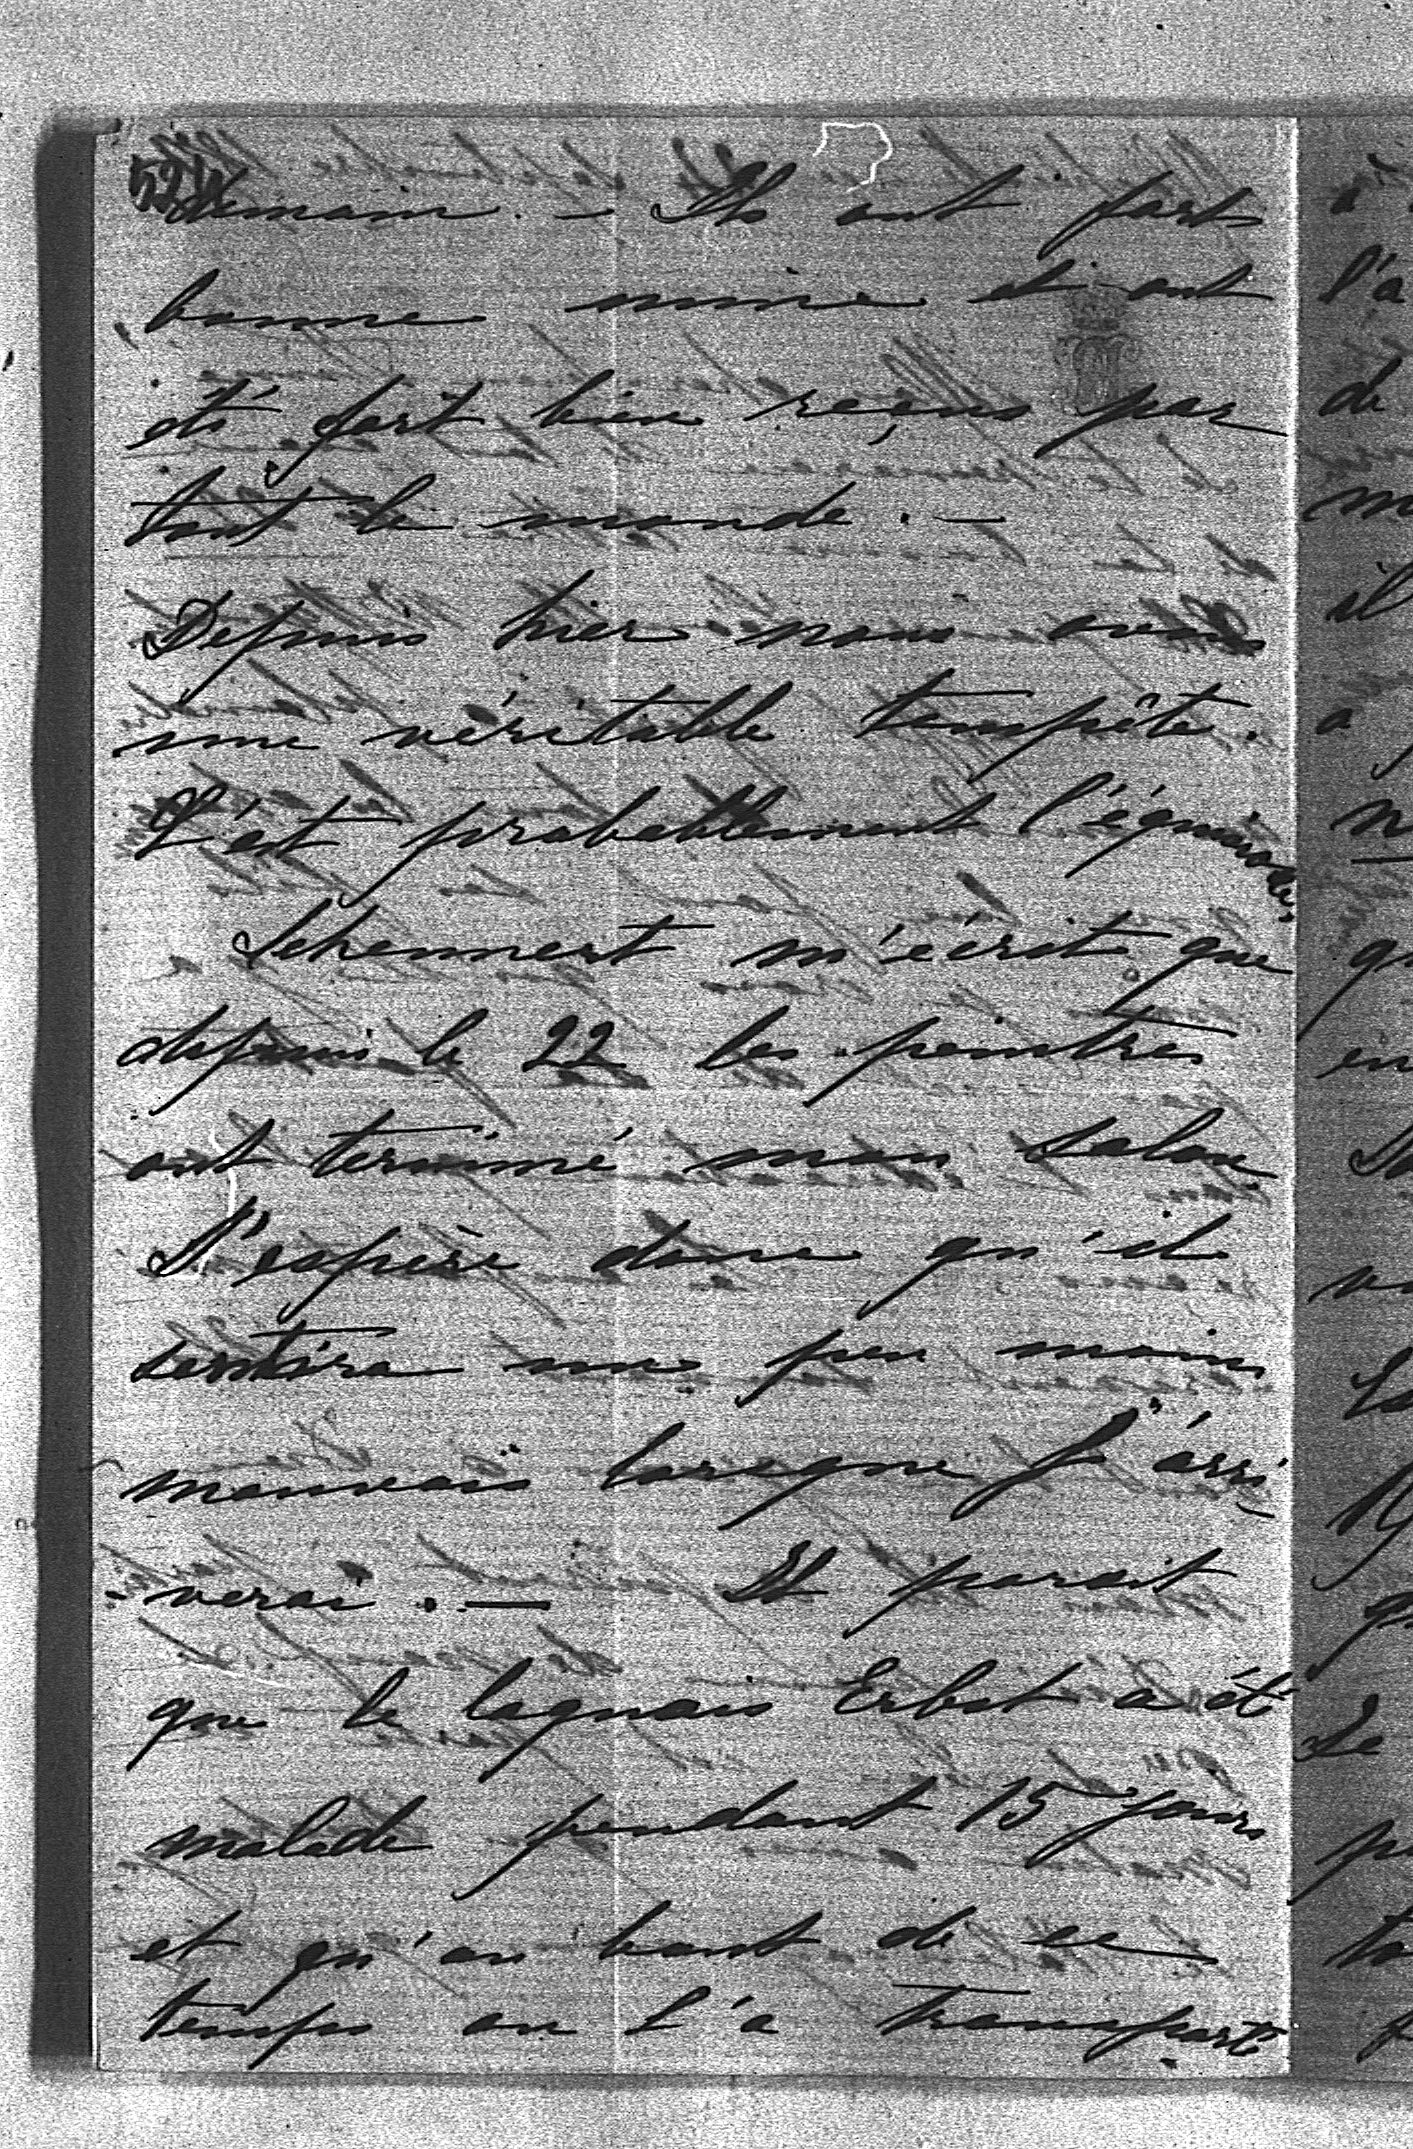 524
demain. – Ils ont fort
bonne mine et ont
été fort bien reçus par
tout le monde. –
Depuis hier nous avons
une véritable tempête.
C'est probablement l'équinoxe.
m'écrit que
depuis le 22 les peintres
ont terminé mon salon
J'espère donc qu'il
sentira un peu moins
mauvais lorsque j'arri-
-verai. – Il parait
que le laquais Erbst a été
malade pendant 15 jours
et qu'au bout de ce
temps on l'a transporté